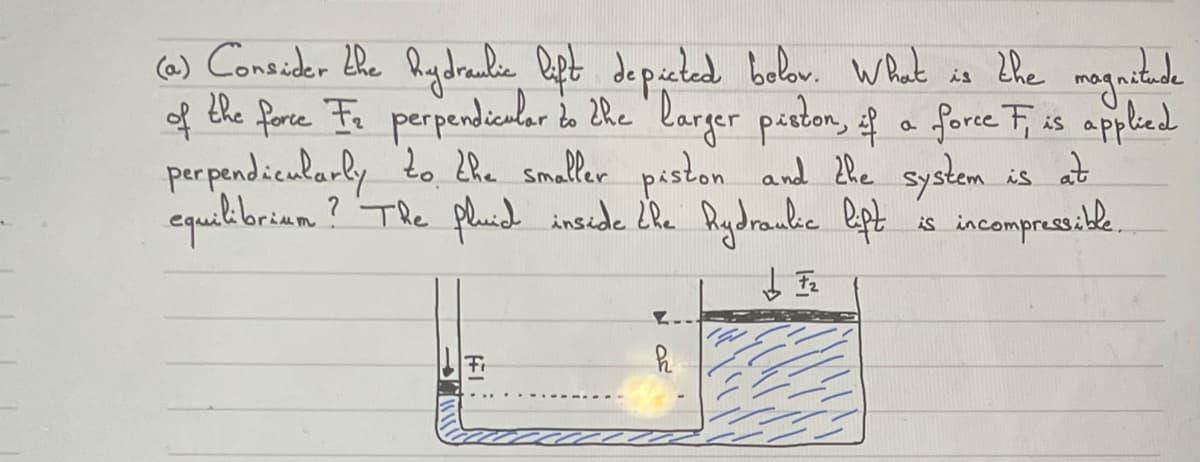 (a) Consider the hydraulic lift depicted below. What is the magnitude
of the force F₂ perpendicular to the larger piston, if a force F₁ is applied
perpendicularly to the smaller piston and the system is at
equilibrium? The fluid inside the hydraulic lift is incompressible.
F₂
F₁
h